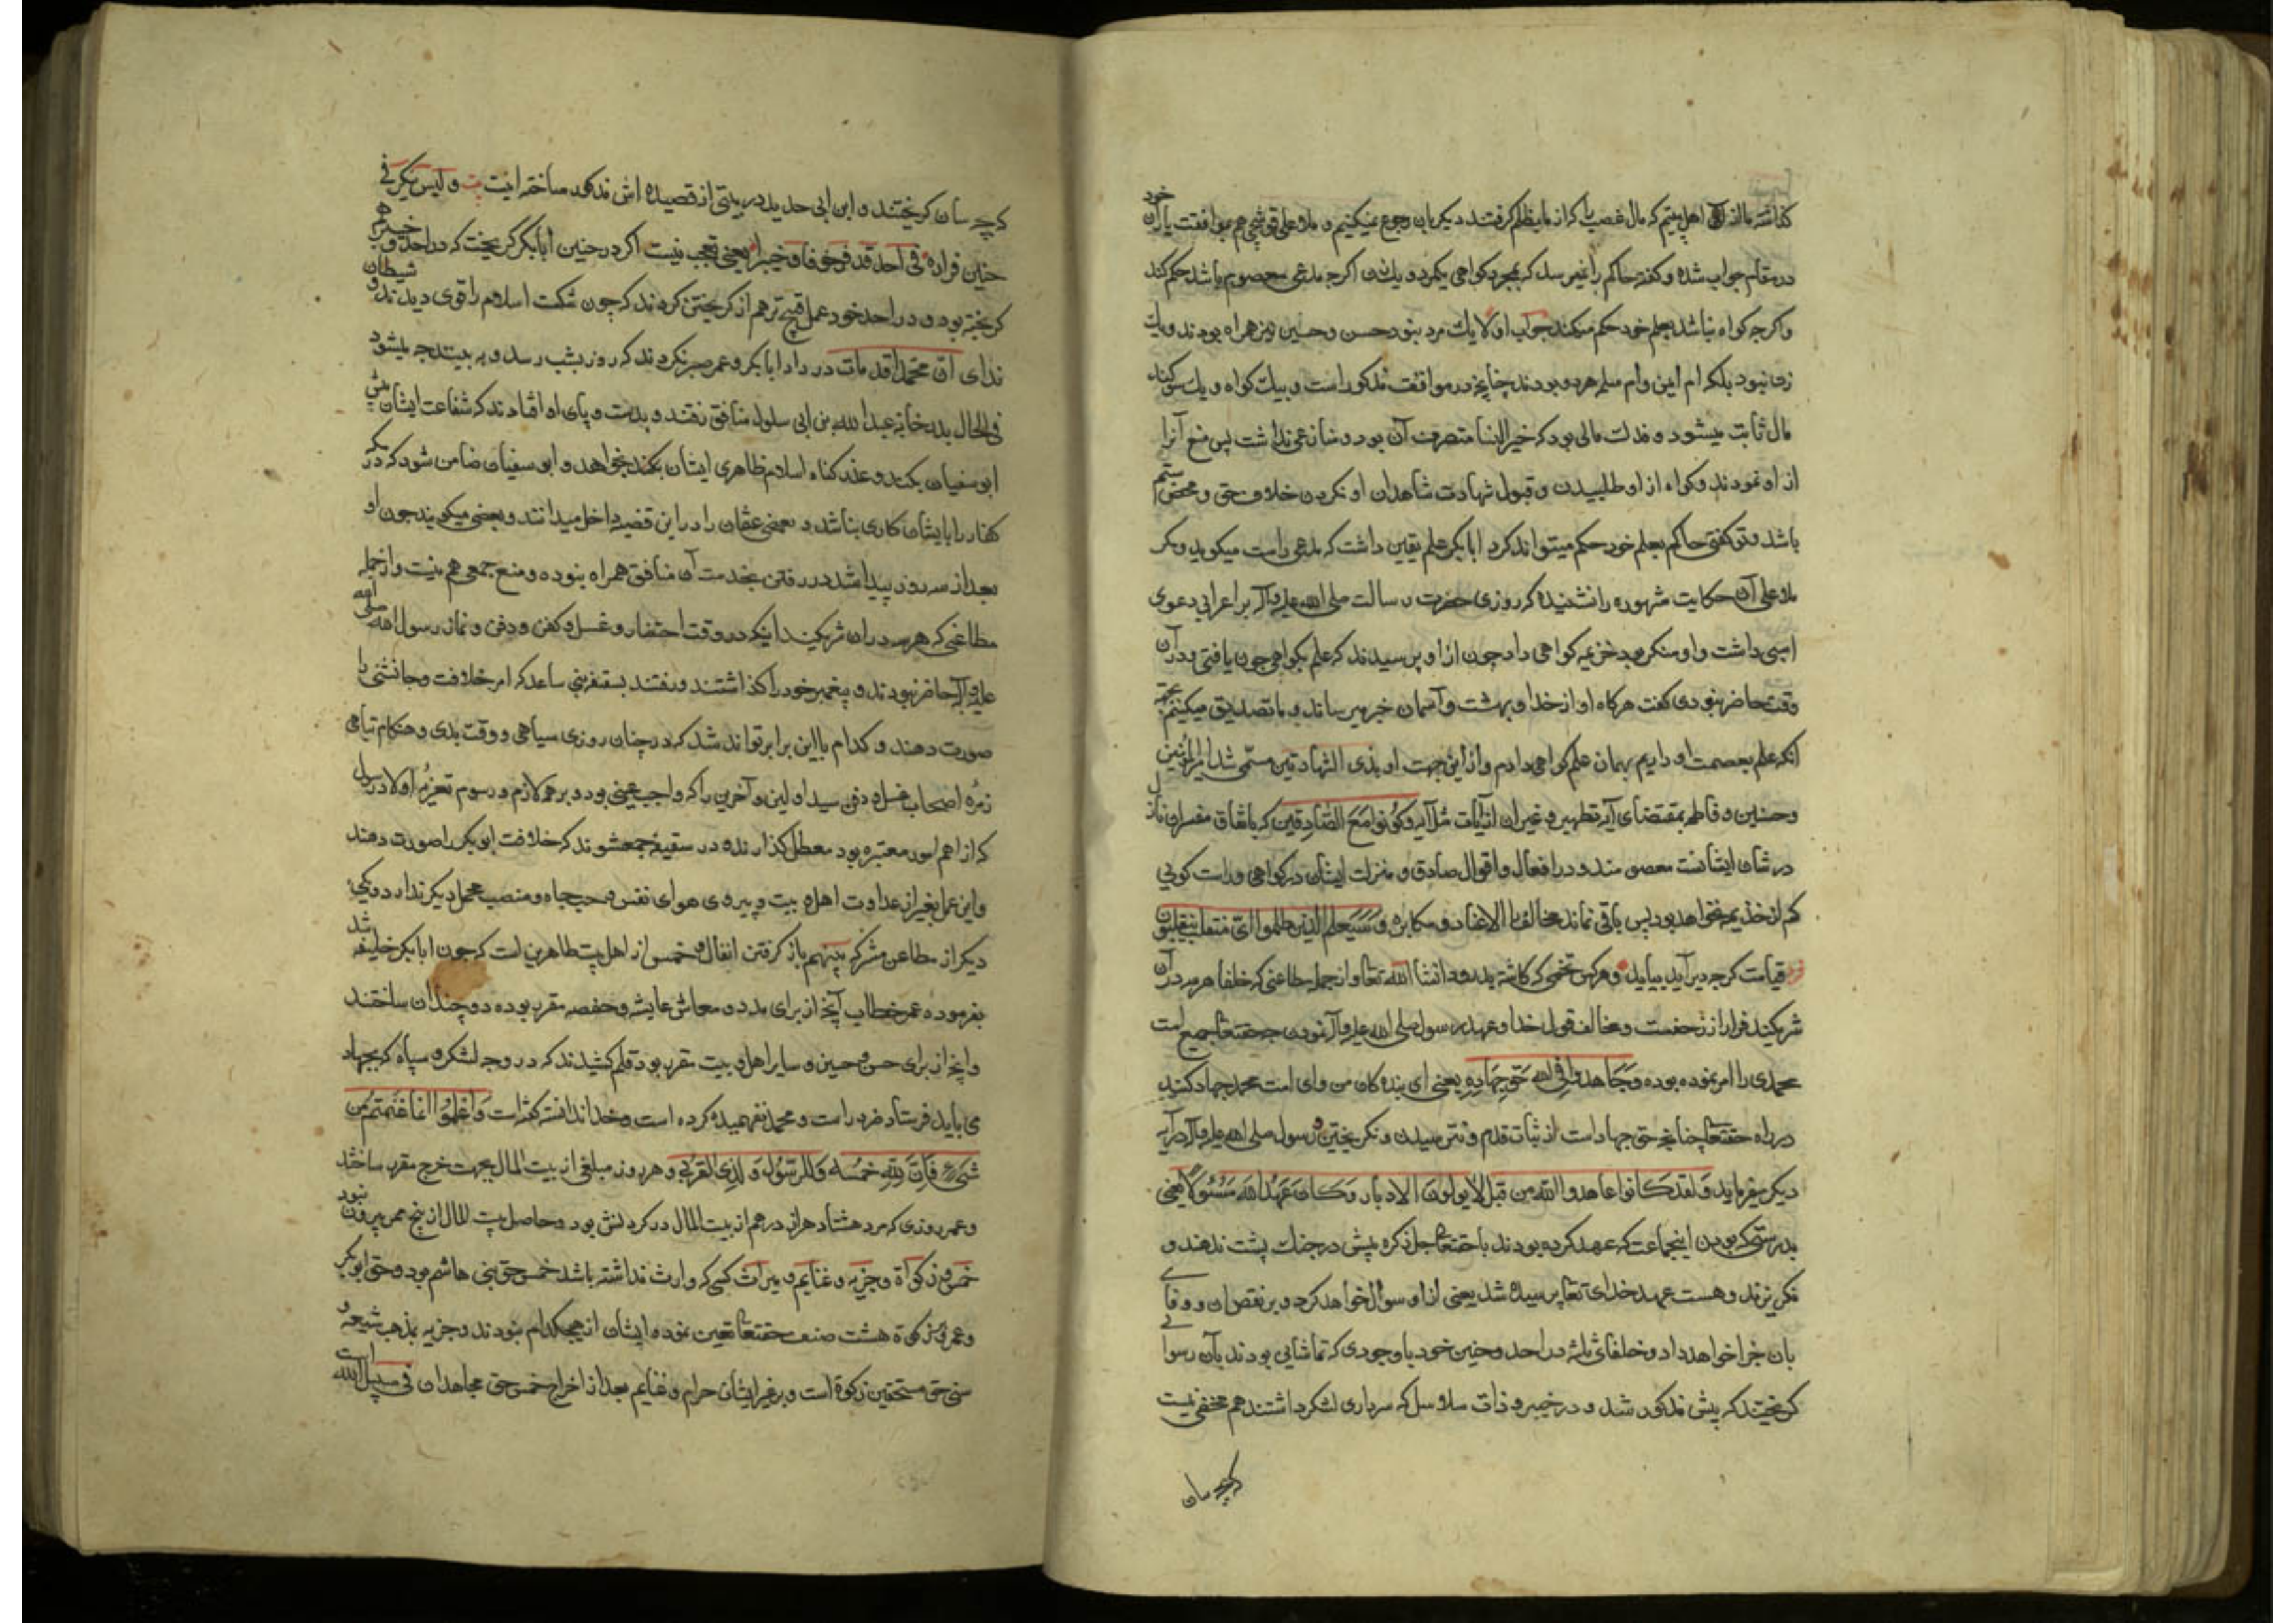 گذاشته ما از اهل بیتیم که مال غصب را که از ما بظلم گرفتند دیگر بان رجوع نمیکنیم و ملا علی قوشچی هم بموافقت یاران خود
در مقام جواب شده و گفته حاکم را نمیرسد که بمجرد کواهی یکمرد و یک زن اکرچه مدعی معصوم باشد حکم کند
و اکرچه کواه نباشد بعلم خود حکم میکند جواب اولا یک مرد نبود حسن و حسین نیز همراه بودند و یک
زن نبود بلکه ام ایمن و ام سلمه هر دو بودند چنانچه در مواقف مذکور است و بیک کواه و یک سوکند
مال ثابت میشود و فدک مالی بود که خیر النسا متصرف آن بود و منازعی نداشت پس منع آنرا
از او نمودند و کواه از او طلبیدن و قبول شهادت شاهدان او نکردن خلاف حق و محض ستم
باشد و تو کفتی حاکم بعلم خود حکم میتواند کرد ابابکر علم یقین داشت که مدعی راست میکوید و مکر
ملا علی آن حکایت مشهوره را نشنیده که روزی حضرت رسالت صلی الله علیه وآله بر اعرابی دعوی
اسبی داشت و او منکر بود خزیمه کواهی داد چون از او پرسیدند که علم بکواهی چون یافتی و در آن
وقت حاضر نبودی کفت هرکاه او از خدا و بهشت و آسمان خبر میرساند و ما تصدیق میکنیم
آنکه علم بعصمت او داریم بهمان علم کواهی دادم و از این جهت او بذی الشهادتین مسمی شد امیرالمؤمنین
و حسنین و فاطمه بمقتضای آیه تطهیر و غیر ان از آیات مثل آیه وَکُونُوا مَعَ الصَّادِقِین که باتفاق مفسران نازل
در شان ایشانست معصومند و در افعال و اقوال صادق و منزلت ایشان در کواهی و راست کویی
کم از خذیمه نخواهد بود پس باقی نماند مخالف را الا عناد و مکابره وَسَیَعلَمُ الَّذینَ ظلموا اَیَّ منقلب ینقلبون
قیامت کرچه دیر آید بیاید و هرکس تخمی که کاشته بدرود انشا الله تعا و از جمله مطاعنی که خلفا هر سه در آن
شریکند فرار از زحفست و مخالف قول خدا و عهد رسول صلی الله علیه وآله نمودن چه حقتعا جمیع امت
محمدی را امر نموده بوده وَجَاهدوا فِی الله حَقَّ جِهَادِهِ یعنی ای بنده کان من و ای امت محمد جهاد کنید
در راه حقتعا چنانچه حق جهاد است از ثبات قدم و نترسیدن و نکریختن و رسول صلی الله علیه وآله در آیه
دیکر میفرماید وَلَقَد کَانوا عاهدوا اللّه من قبل لا یولّون الادبار وَکَانَ عَهدُ اللّه مَسئولاً یعنی
بدرستی که بودن اینجماعت که عهد کرده بودند با حقتعا جل ذکره پیش در جنک پشت ندهند و
نکریزند و هست عهد خدای تعا پرسیده شد یعنی از او سوال خواهد کرد و بر نقص ان و وفای
بان جزا خواهد داد و خلفای ثلثه در احد و حنین خود با وجودی که تماشایی بودند بآن رسوایی
کریختند که پیش مذکور شد و در خیبر و ذات سلاسل که سرداری لشکر داشتند هم مخفی نیست
که چه سان
که چه سان کریختند و ابن ابی حدید در بیتی از قصیده اش مذکور ساخته اینست بیت و لیس بنکر فی
حنین فراره فی احد قد فر خوفا و خیبرا یعنی تعجب نیست اکر در حنین ابابکر کریخت که در احد و خیبر هم
کریخته بود و در احد خود عمل قبیح تر هم از کریختن کردند که چون شکست اسلام را قوی دیدند و شیطان
ندای ان محمدا قد مات در داد ابابکر و عمر صبر نکردند که روز بشب رسد و به بینند چه میشود
فی الحال بدر خانه عبدالله بن ابی سلول منافق رفتند و بدست و پای او افتادند که شفاعت ایشان پیش
ابو سفیان بکند و عذر کناه اسلام ظاهری ایشان بکند بخواهد و ابو سفیان ضامن شود که دیکر
کفار را با ایشان کاری نباشد و بعضی عثمان را در این قضیه داخل میدانند و بعضی میکویند چون او
بعد از سه روز پیدا شد در رفتن بخدمت آن منافق همراه نبوده و منع جمعی هم نیست و از جمله
مطاعنی که هر سه در ان شریکند اینکه در وقت احتضار و غسل و کفن و دفن و نماز رسول الله صلی الله
علیه وآله حاضر نبودند و پیغمبر خود را کذاشتند و رفتند بسقیفه بنی ساعده که امر خلافت و جانشینی را
صورت دهند و کدام با این برابر تواند شد که در چنان روزی سیاهی و وقت بدی و هنکام تباهی
زمره اصحاب غسل و دفن سید اولین و آخرین را که واجب عینی بود و بر همه لازم و رسوم تعزیه اولاد رسول
که از اهم امور معتبره بود معطل کذارنده در سقیفه جمعشوند که خلافت ابوبکر را صورت دهند
و این عمل بغیر از عداوت اهل بیت و پیروی هوای نفس و حب جاه و منصب محمل دیکر ندارد و یکی
دیکر از مطاعن مشترکه بینهم باز کرفتن انفال و خمس از اهل بیت طاهرین است که چون ابابکر خلیفه شد
بفرموده عمر خطاب آنچه از برای مدد و معاش عایشه و حفصه مقرر بوده دو چندان ساختند
و آنچه از برای حسن و حسین و سایر اهل بیت مقرر بود قلم کشیدند که در وجه لشکر و سپاه که بجهاد
می باید فرستاد ضرر راست و محمد نفهمیده کرده است و خدا ندانسته کفته است وَاعلَمُوا انما غنمتم من
شَیءٍ فَاِنَّ لِلّهِ خمُسَه وَللرّسُول وَلِذِی القُربی و هر روز مبلغی از بیت المال بجهت خرج مقرر ساختند
و عمر روزی که مرد هشتاد هزار درهم از بیت المال در کردنش بود و حاصل بیت المال از پنج ممر بیرون نبود
خمس و زکواة و جزیه و غنایم و میراث کسی که وارث نداشته باشد خمس حق بنی هاشم بود و حق ابوبکر
و عمر نبود زکوة هشت صنف حقتعا تعیین نموده ایشان از هیچکدام نبودند و جزیه بمذهب شیعه و
سنی حق مستحقین زکوة است و بر غیر ایشان حرام و غنایم بعد از اخراج خمس حق مجاهدان فی سبیل الله است